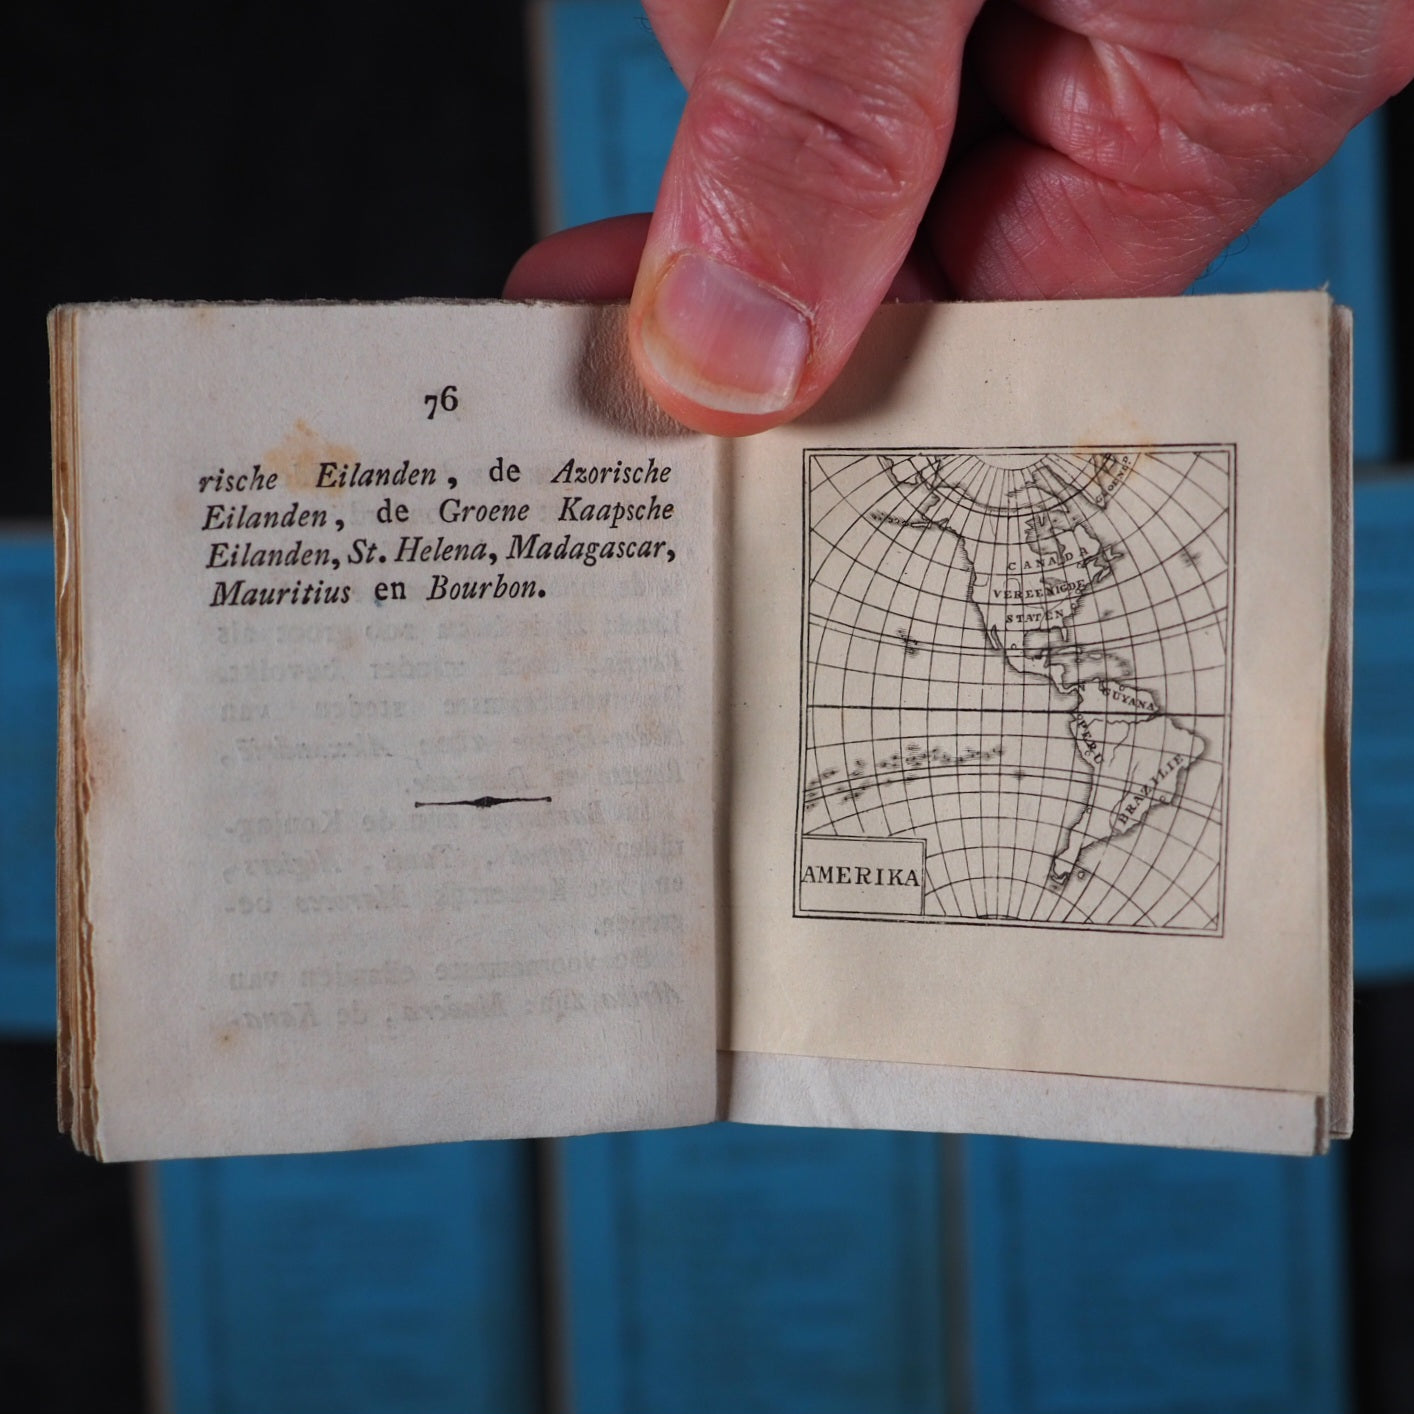 76
rische Eilanden, de Azorische
Eilanden, de Groene Kaapsche
Eilanden, St. Helena, Madagascar,
Mauritius en Bourbon.
CANADA
VEREENIGDE
STATEN
GUYANA
PERU
BRAZILIE
AMERIKA